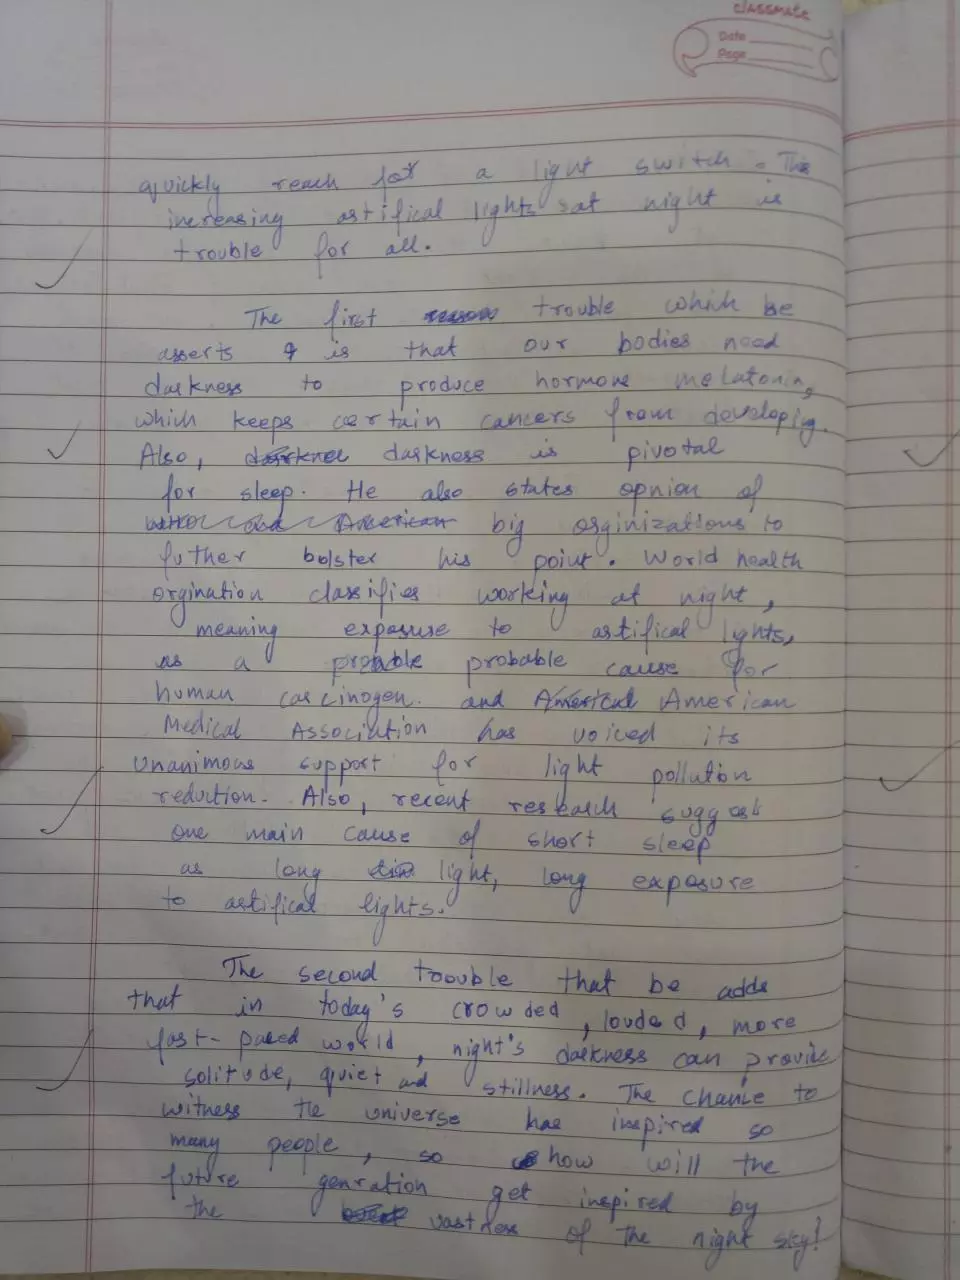 classmate
Date
Page
quickly reach for a light switch. This
increasing artifical lights at night is
trouble for all.
The first trouble which he
asserts is that our bodies need
darkness to produce hormone melatonin,
which keeps certain cancers from developig.
Also, darkness is pivotal
for sleep. He also states opnion of
big orginizations to
futher bolster his point. World health
orgination classifies working at night,
meaning exposure to artifical lights,
as a probable cause for
human carcinogen. and American
Medical Association has voiced its
unanimous support for light pollution
reduction. Also, recent research suggest
one main cause of short sleep
as long light, long exposure
to artifical lights.
The second trouble that he adds
that in today's crowded, louded, more
fast-paced world, night's darkness can provide
solitude, quiet and stillness. The chance to
witness the universe has inspired so
many people, so how will the
future genration get inspired by
the vastness of the night sky!